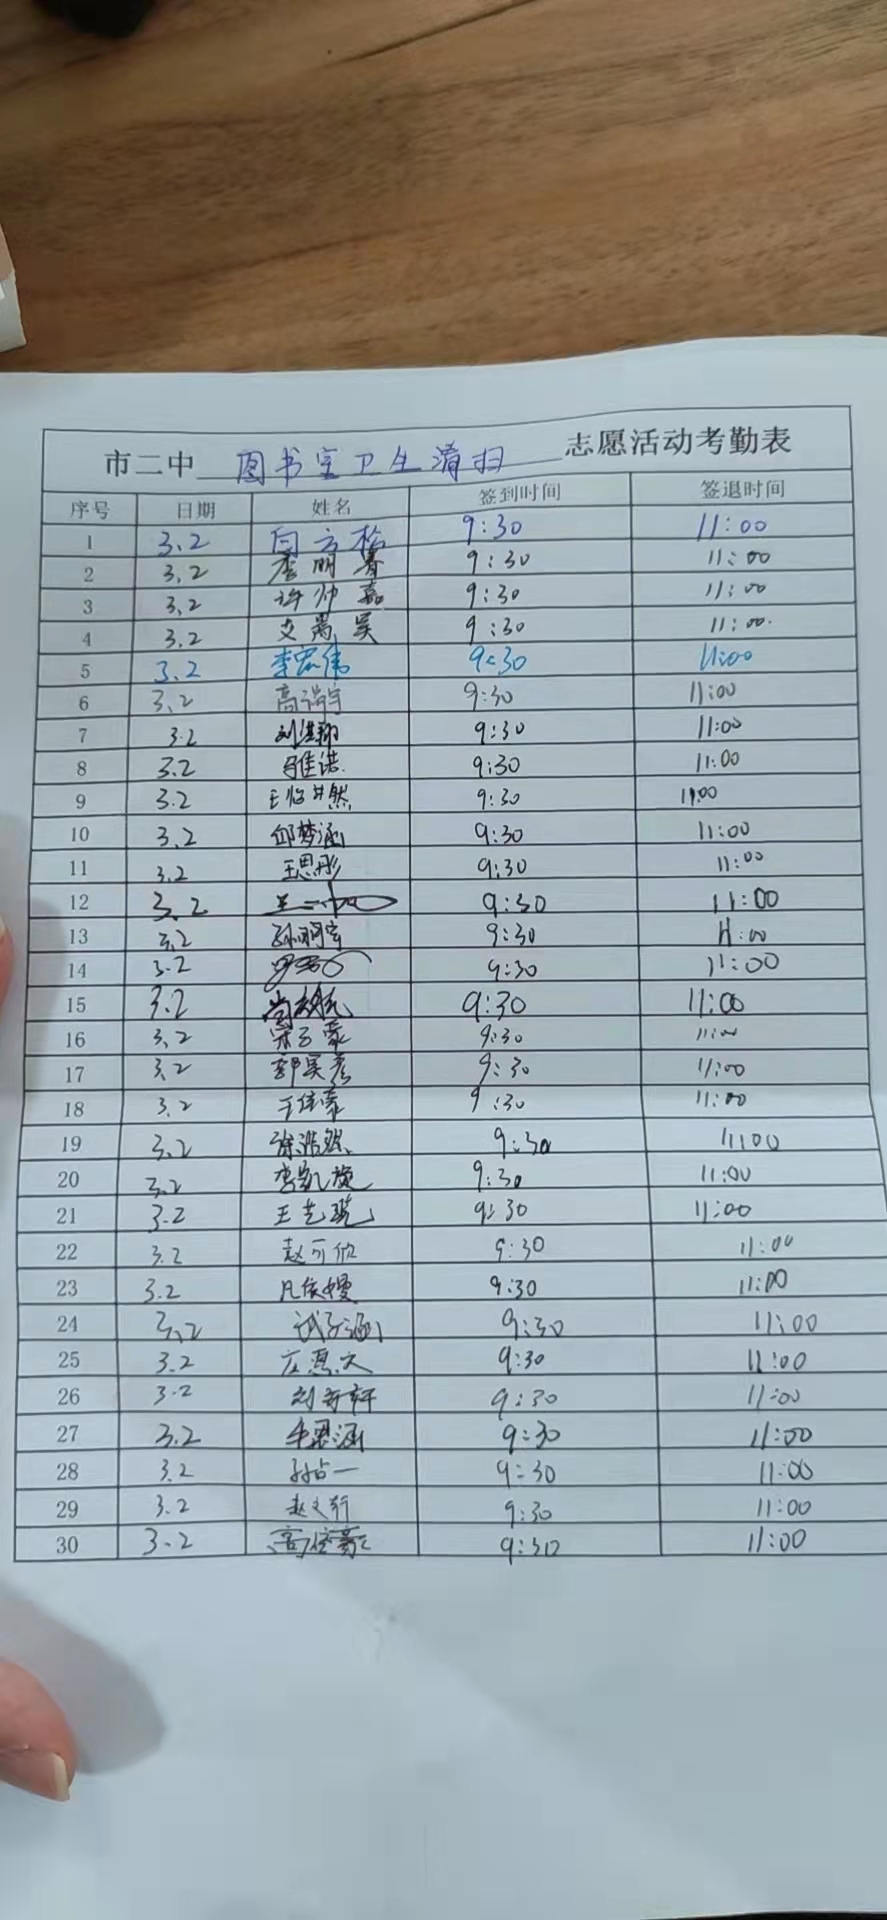 市二中 图书室卫生清扫 志愿活动考勤表
序号 日期 姓名 签到时间 签退时间
1 3.2 闫方松 9:30 11:00
2 3.2 李明春 9:30 11:00
3 3.2 许帅嘉 9:30 11:00
4 3.2 艾嵩昊 9:30 11:00
5 3.2 李宏伟 9:30 11:00
6 3.2 高瑞宇 9:30 11:00
7 3.2 刘洪翔 9:30 11:00
8 3.2 雅诺 9:30 11:00
9 3.2 王 然 9:30 11:00
10 3.2 邱梦涵 9:30 11:00
11 3.2 王思彤 9:30 11:00
12 3.2 9:30 11:00
13 3.2 孙明宇 9:30 11:00
14 3.2 9:30 11:00
15 3.2 尚 9:30 11:00
16 3.2 宋子豪 9:30 11:00
17 3.2 郭昊彦 9:30 11:00
18 3.2 于佳豪 9:30 11:00
19 3.2 徐浩然 9:30 11:00
20 3.2 李凯旋 9:30 11:00
21 3.2 王艺 9:30 11:00
22 3.2 赵可欣 9:30 11:00
23 3.2 凡依嫚 9:30 11:00
24 3.2 子涵 9:30 11:00
25 3.2 9:30 11:00
26 3.2 刘 轩 9:30 11:00
27 3.2 涵 9:30 11:00
28 3.2 一 9:30 11:00
29 3.2 赵文 9:30 11:00
30 3.2 高佳豪 9:30 11:00